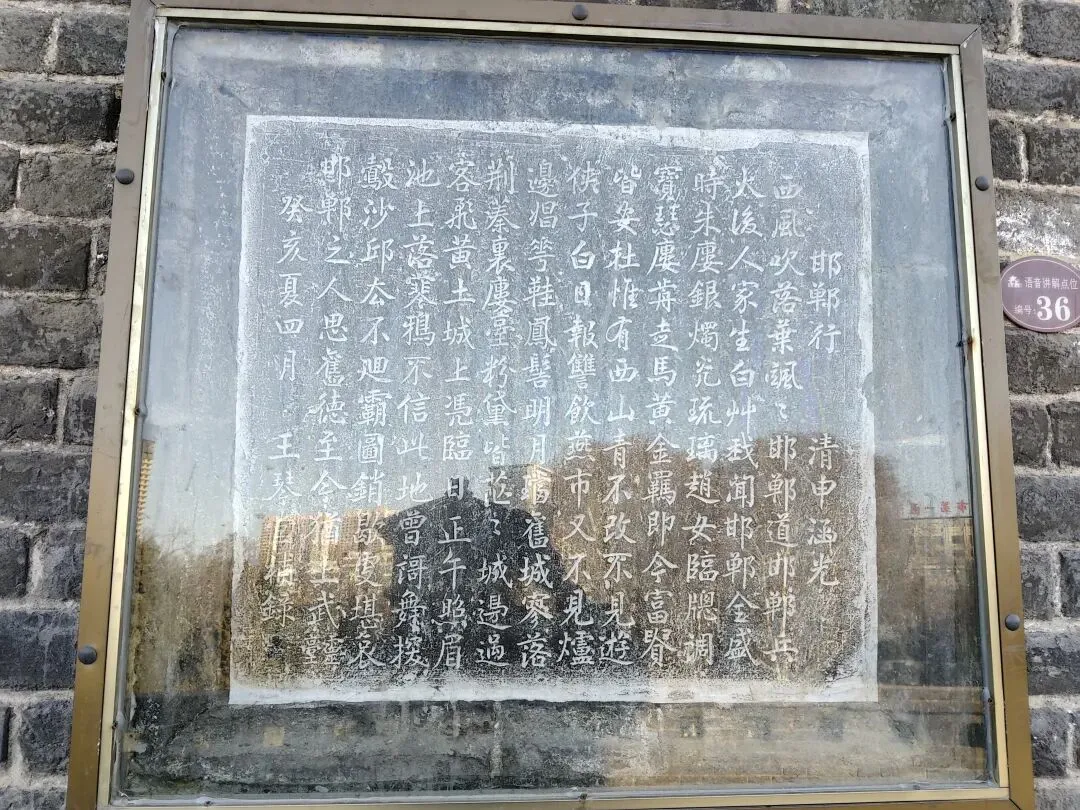 邯鄲行 清申涵光
西風吹落葉颯〻邯鄲道邯鄲兵
火後人家生白艸我聞邯鄲全盛
時朱廔銀燭光琉璃趙女臨牕調
寶瑟廔前走馬黃金羈即今富貴
皆安在惟有西山青不改不見遊
俠子白日報讐飲燕市又不見爐
邊倡弩鞋鳳髻明月璫舊城寥落
荊蓁裏廔臺粉黛皆茫〻城邊過
客飛黃土城上憑臨日正午照眉
池上落寒鴉不信此地曾謌舞援
轂沙邱去不廻霸圖銷歇叓堪哀
邯鄲之人思舊德至今猶上武靈臺
癸亥夏四月 王琴 錄
语音讲解点位
编号: 36